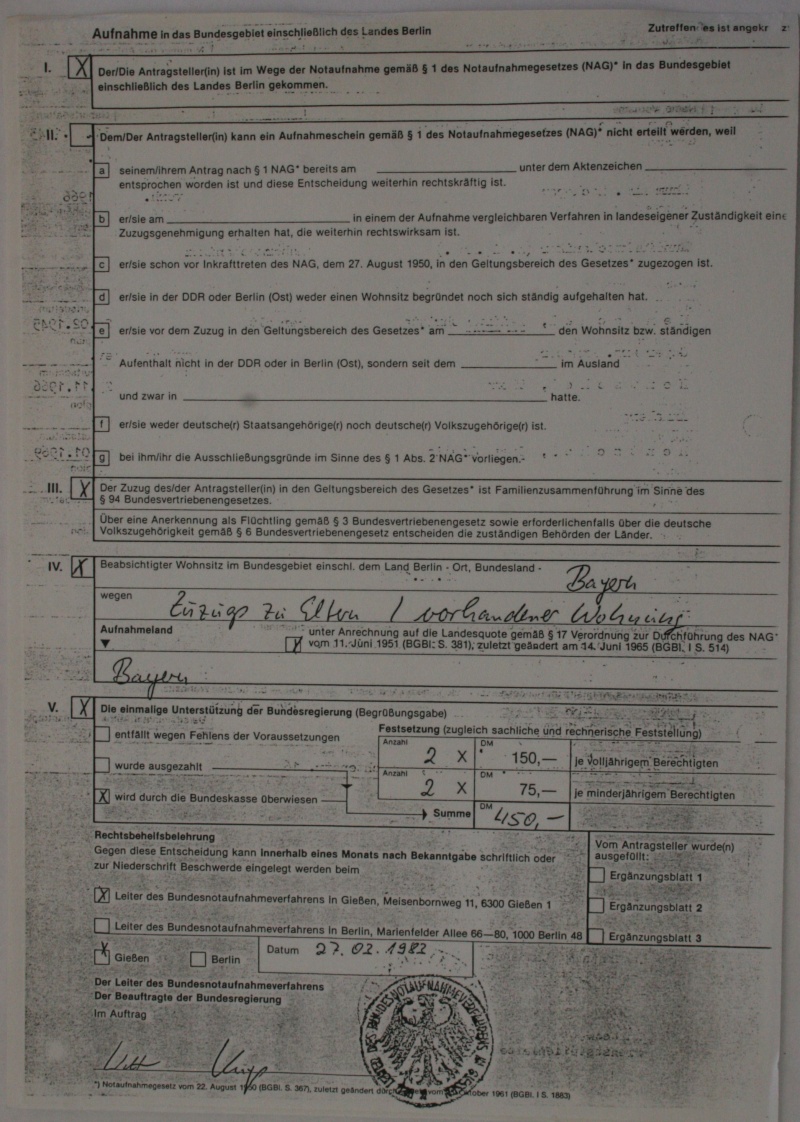 Aufnahme in das Bundesgebiet einschließlich des Landes Berlin
Zutreffendes ist angekr
I. X Der/Die Antragsteller(in) ist im Wege der Notaufnahme gemäß § 1 des Notaufnahmegesetzes (NAG)* in das Bundesgebiet
einschließlich des Landes Berlin gekommen.
II. Dem/Der Antragsteller(in) kann ein Aufnahmeschein gemäß § 1 des Notaufnahmegesetzes (NAG)* nicht erteilt werden, weil
a seinem/ihrem Antrag nach § 1 NAG* bereits am unter dem Aktenzeichen
entsprochen worden ist und diese Entscheidung weiterhin rechtskräftig ist.
b er/sie am in einem der Aufnahme vergleichbaren Verfahren in landeseigener Zuständigkeit eine
Zuzugsgenehmigung erhalten hat, die weiterhin rechtswirksam ist.
c er/sie schon vor Inkrafttreten des NAG, dem 27. August 1950, in den Geltungsbereich des Gesetzes* zugezogen ist.
d er/sie in der DDR oder Berlin (Ost) weder einen Wohnsitz begründet noch sich ständig aufgehalten hat.
e er/sie vor dem Zuzug in den Geltungsbereich des Gesetzes* am den Wohnsitz bzw. ständigen
Aufenthalt nicht in der DDR oder in Berlin (Ost), sondern seit dem im Ausland
und zwar in hatte.
f er/sie weder deutsche(r) Staatsangehörige(r) noch deutsche(r) Volkszugehörige(r) ist.
g bei ihm/ihr die Ausschließungsgründe im Sinne des § 1 Abs. 2 NAG* vorliegen.
III. X Der Zuzug des/der Antragsteller(in) in den Geltungsbereich des Gesetzes* ist Familienzusammenführung im Sinne des
§ 94 Bundesvertriebenengesetzes.
Über eine Anerkennung als Flüchtling gemäß § 3 Bundesvertriebenengesetz sowie erforderlichenfalls über die deutsche
Volkszugehörigkeit gemäß § 6 Bundesvertriebenengesetz entscheiden die zuständigen Behörden der Länder.
IV. X Beabsichtigter Wohnsitz im Bundesgebiet einschl. dem Land Berlin - Ort, Bundesland -
Bayern
wegen Zuzugs zu Eltern / vorhandener Wohnung
Aufnahmeland
unter Anrechnung auf die Landesquote gemäß § 17 Verordnung zur Durchführung des NAG*
vom 11. Juni 1951 (BGBl. S. 381), zuletzt geändert am 14. Juni 1965 (BGBl. I S. 514)
Bayern
V. X Die einmalige Unterstützung der Bundesregierung (Begrüßungsgabe)
entfällt wegen Fehlens der Voraussetzungen
wurde ausgezahlt
X wird durch die Bundeskasse überwiesen
Festsetzung (zugleich sachliche und rechnerische Feststellung)
Anzahl 2 X DM 150,— je volljährigem Berechtigten
Anzahl 2 X DM 75,— je minderjährigem Berechtigten
Summe DM 450,-
Rechtsbehelfsbelehrung
Gegen diese Entscheidung kann innerhalb eines Monats nach Bekanntgabe schriftlich oder
zur Niederschrift Beschwerde eingelegt werden beim
X Leiter des Bundesnotaufnahmeverfahrens in Gießen, Meisenbornweg 11, 6300 Gießen 1
Leiter des Bundesnotaufnahmeverfahrens in Berlin, Marienfelder Allee 66—80, 1000 Berlin 48
Vom Antragsteller wurde(n)
ausgefüllt:
Ergänzungsblatt 1
Ergänzungsblatt 2
Ergänzungsblatt 3
X Gießen
Berlin
Datum 27.02.1982
Der Leiter des Bundesnotaufnahmeverfahrens
Der Beauftragte der Bundesregierung
Im Auftrag
*) Notaufnahmegesetz vom 22. August 1950 (BGBl. S. 367), zuletzt geändert vom Oktober 1961 (BGBl. I S. 1883)